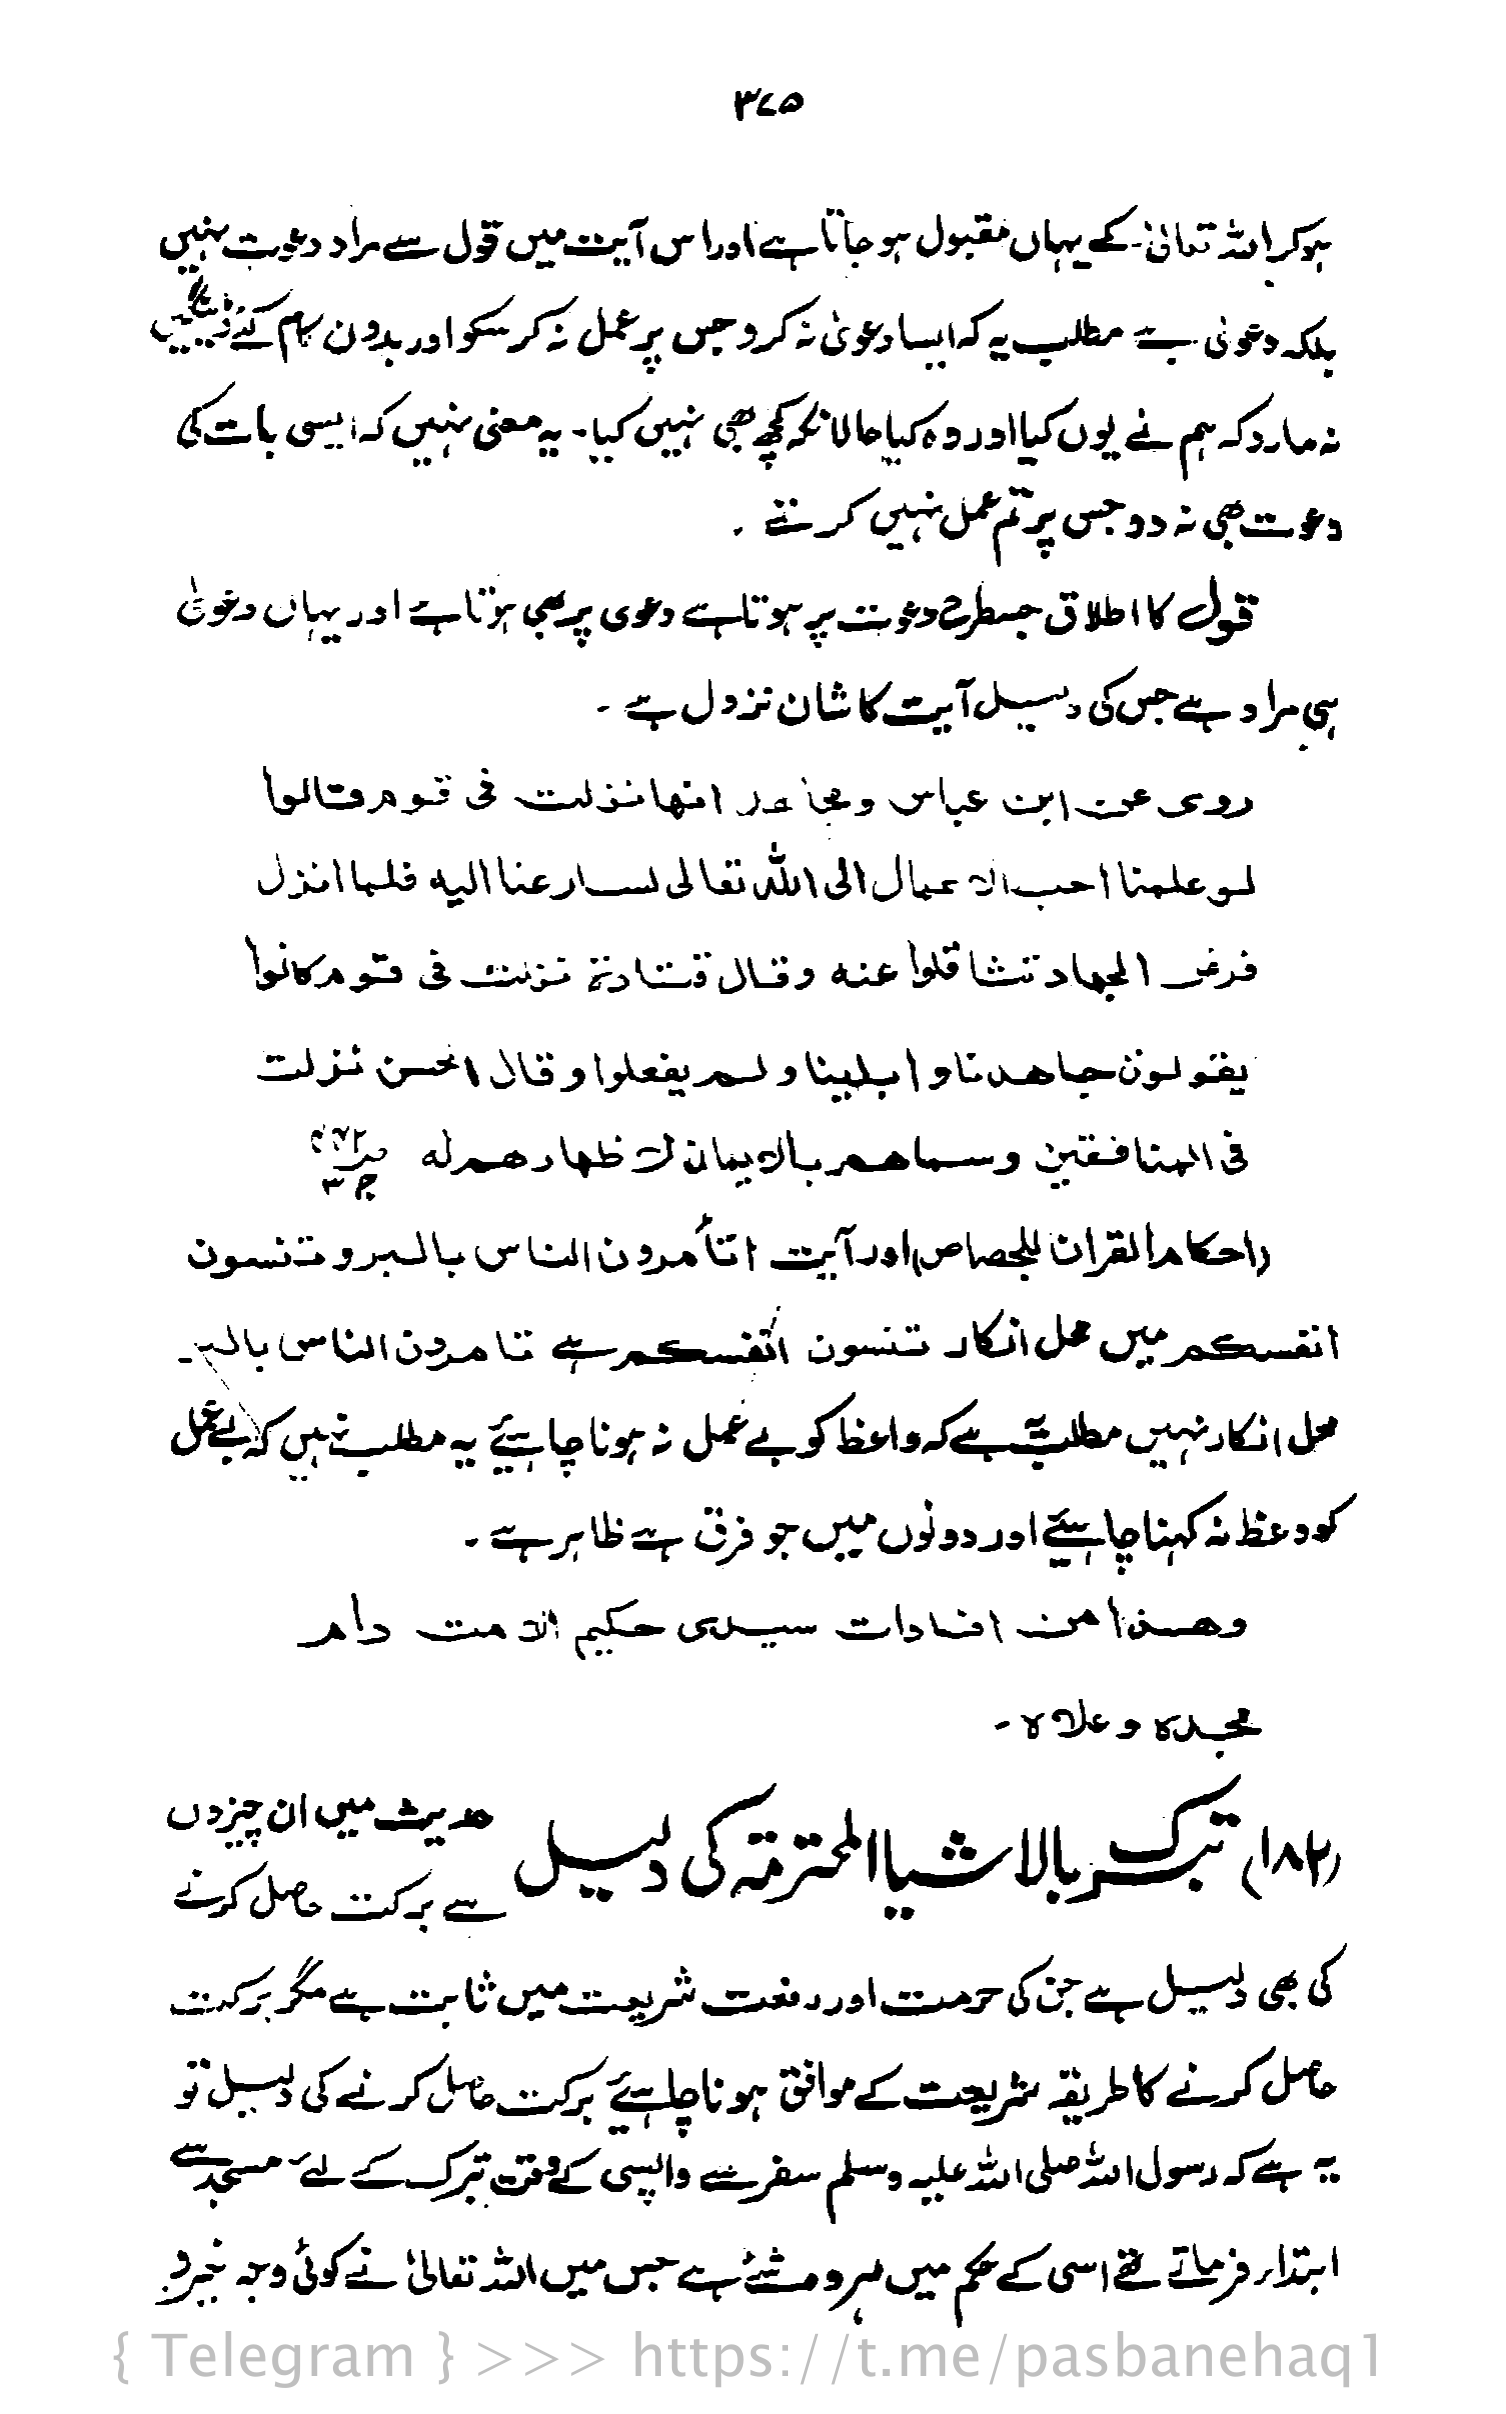 ۳۷۵
ہوکر اللہ تعالیٰ کے یہاں مقبول ہو جاتا ہے اور اس آیت میں قول سے مراد دعوت نہیں
بلکہ دعویٰ ہے مطلب یہ کہ ایسا دعویٰ نہ کرو جس پر عمل نہ کر سکو اور بدون کام کئے ڈینگیں
نہ مارو کہ ہم نے یوں کیا اور وہ کیا حالانکہ کچھ بھی نہیں کیا۔ یہ معنی نہیں کہ ایسی بات کی
دعوت بھی نہ دو جس پر تم عمل نہیں کرتے ۔
قول کا اطلاق جسطرح دعوت پر ہوتا ہے دعوی پر بھی ہوتا ہے اور یہاں دعویٰ
ہی مراد ہے جس کی دلیل آیت کا شان نزول ہے ۔
روی عن ابن عباس و مجاهد انها نزلت فی قوم قالوا
لو علمنا احب الاعمال الی اللہ تعالی لسارعنا الیه فلما انزل
فرض الجهاد تثاقلوا عنه وقال قتادة نزلت فی قوم کانوا
یقولون جاهدنا و ابلینا ولم یفعلوا وقال الحسن نزلت
فی المنافقین وسماهم بالایمان لاظهارهم له ج ۳
(احکام القرآن للجصاص) اور آیت اتأمرون الناس بالبر و تنسون
انفسکم میں محل انکار تنسون انفسکم ہے تامرون الناس بالبر۔
محل انکار نہیں مطلب یہ ہے کہ واعظ کو بے عمل نہ ہونا چاہیئے یہ مطلب نہیں کہ بے عمل
کو وعظ نہ کہنا چاہیئے اور دونوں میں جو فرق ہے ظاہر ہے ۔
وهذا من افادات سیدی حکیم الامت دام
مجده و علاه ۔
(۱۸۲) تبرک بالاشیاا المحترمتہ کی دلیل
حدیث میں ان چیزوں
سے برکت حاصل کرنے
کی بھی دلیل ہے جن کی حرمت اور رفعت شریعت میں ثابت ہے مگر برکت
حاصل کرنے کا طریقہ شریعت کے موافق ہونا چاہیئے برکت حاصل کرنے کی دلیل تو
یہ ہے کہ رسول اللہ صلی اللہ علیہ وسلم سفر سے واپسی کے وقت تبرک کے لئے مسجد سے
ابتداء فرماتے تھے اسی کے حکم میں ہر وہ شئے ہے جس میں اللہ تعالیٰ نے کوئی وجہ خیر و
{ Telegram } >>> https://t.me/pasbanehaq1